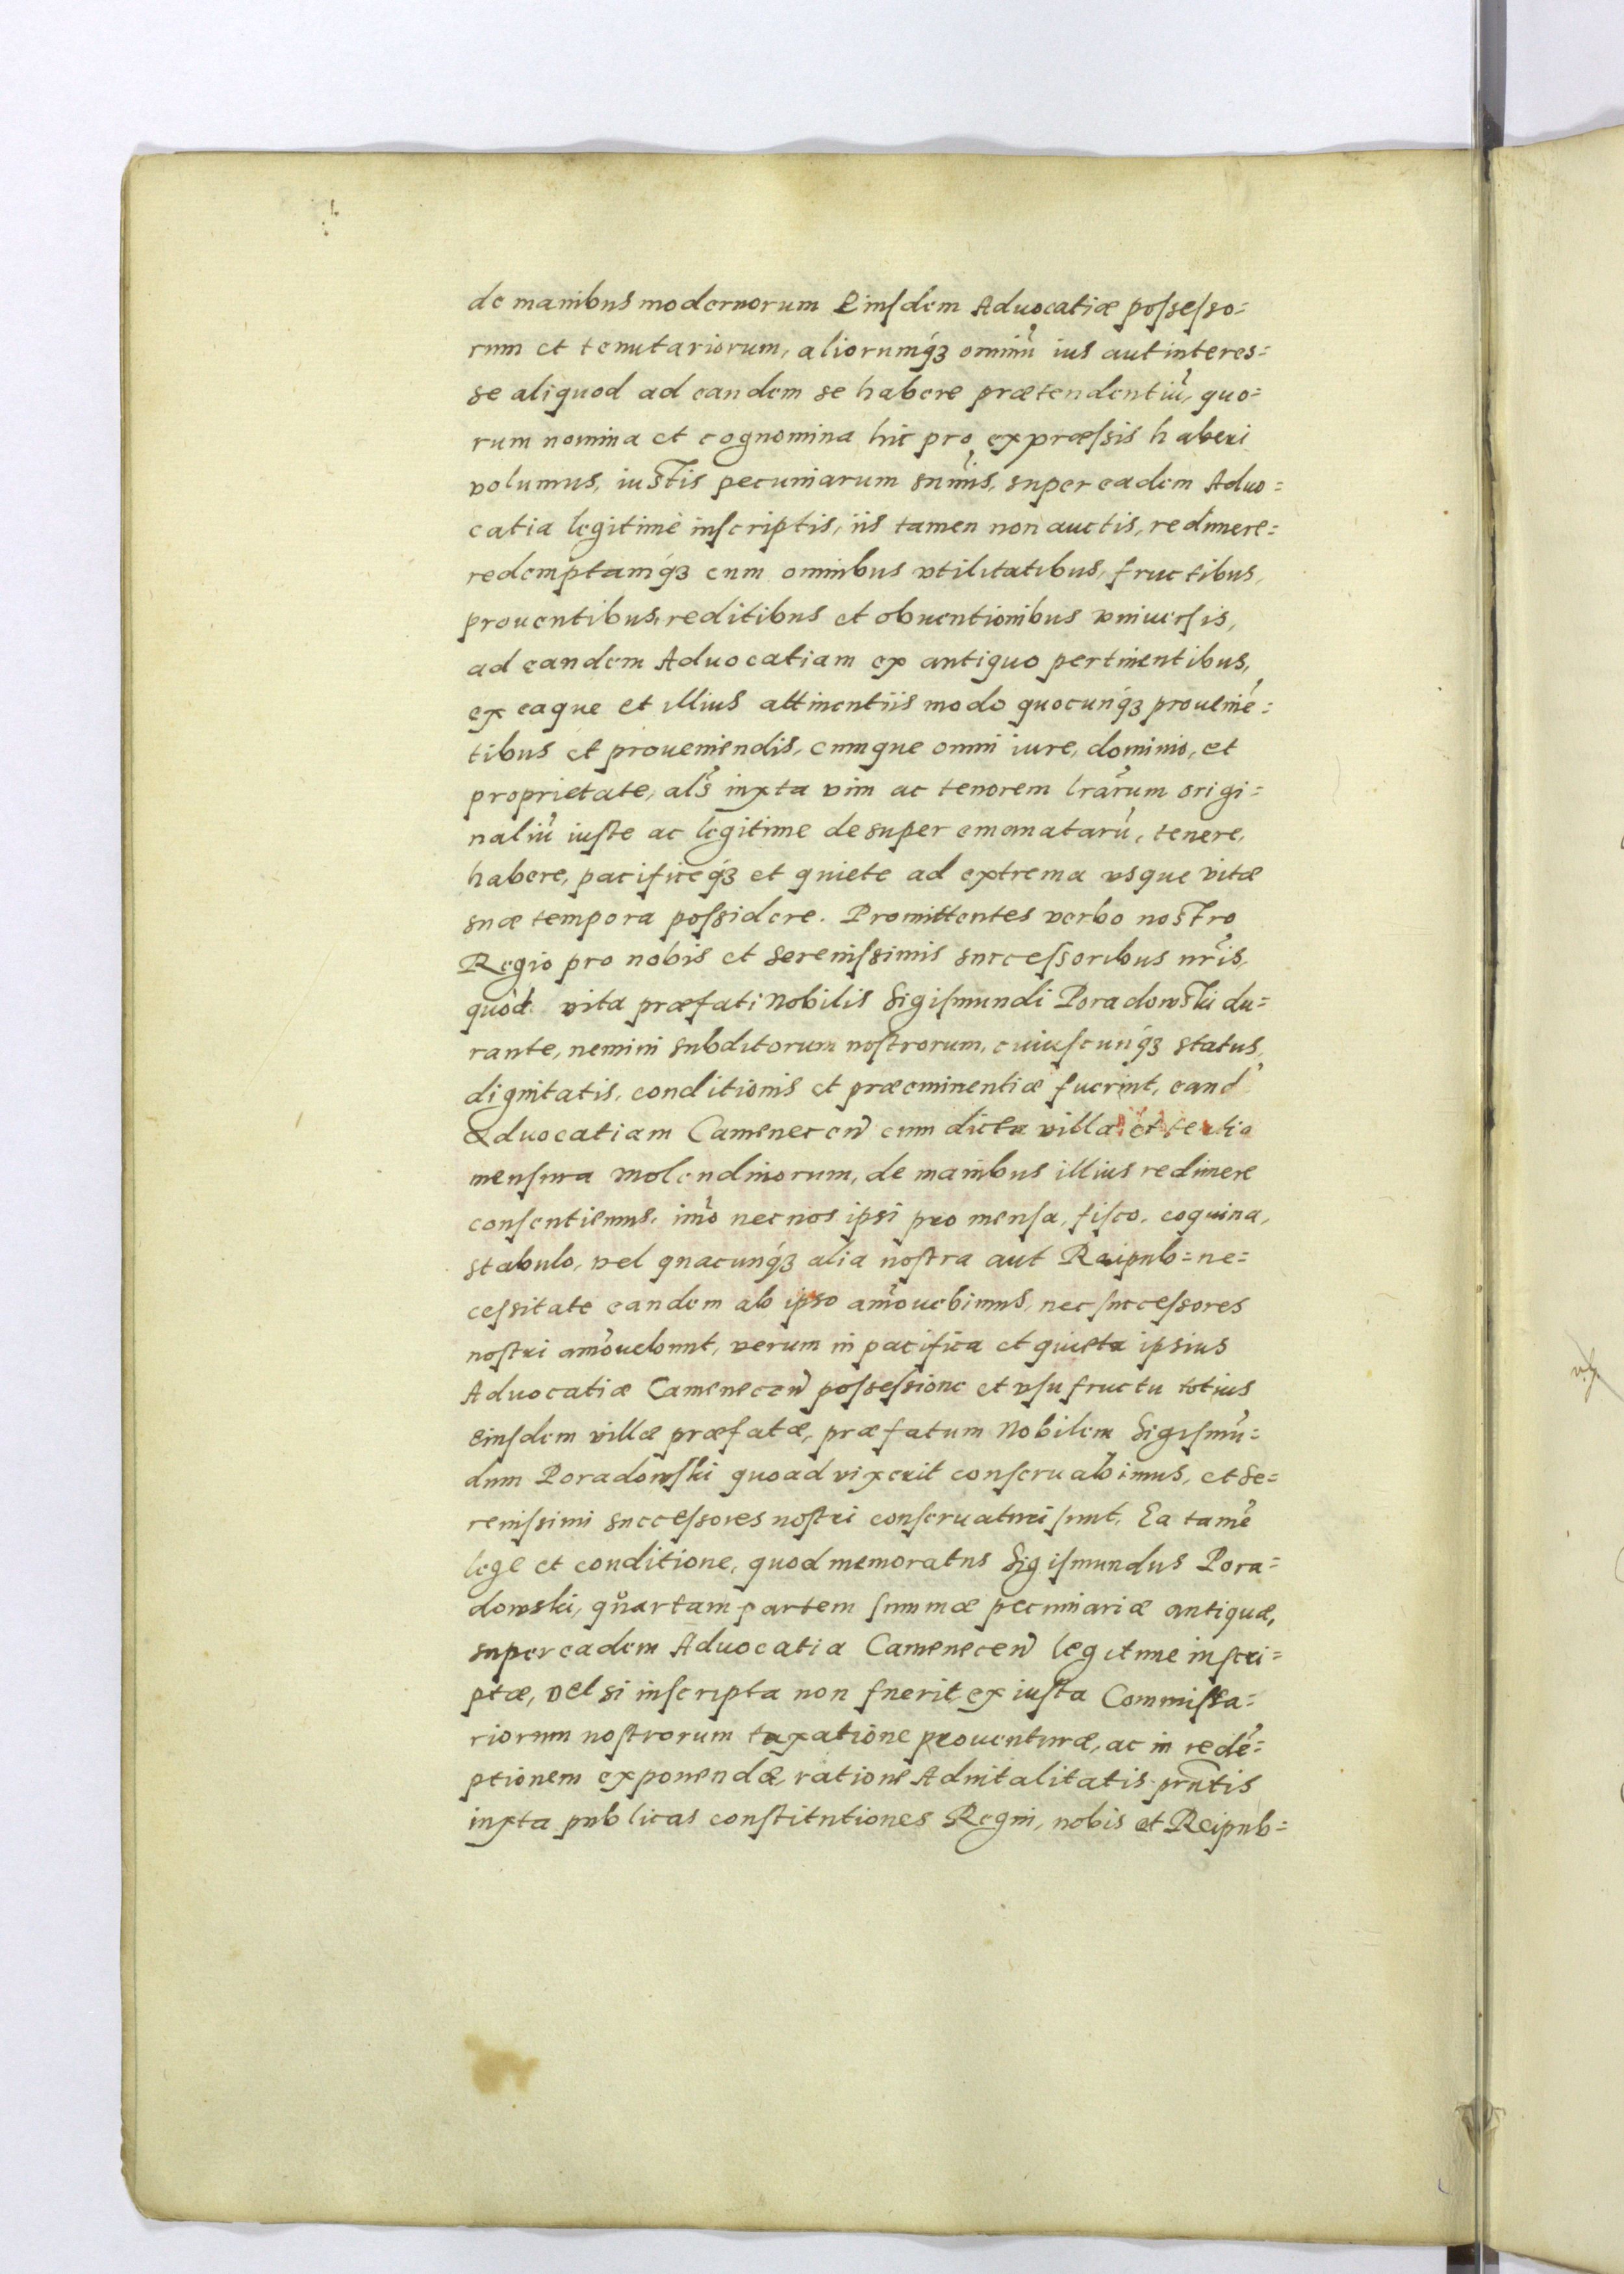 de manibus modernorum Eiusdem Advocatiæ possesso=
rum et tenutariorum, aliorumq́ꝫ omniũ ius aut interes=
se aliquod ad eandem se habere prætendentiũ, quo=
rum nomina et cognomina hic pro expræssis haberi
volumus, iustis pecuniarum sum̃is, super eadem Advo=
catia legitimè inscriptis, iis tamen non auctis, redimere=
redemptamq́ꝫ cum omnibus vtilitatibus, fructibus,
prouentibus, reditibus et obuentionibus vniuersis,
ad eandem Aduocatiam ex antiquo pertinentibus,
ex eaque et illius attinentiis modo quocunq́ꝫ proueniẽ=
tibus et proueniendis, cumque omni iure, dominio, et
proprietate, als̃ iuxta vim ac tenorem lrãrum origi=
naliũ iuste ac legitime desuper emanatarũ, tenere,
habere, pacificeq́ꝫ et quiete ad extrema vsque vitæ
suæ tempora possidere. Promittentes verbo nostro
Regio pro nobis et Serenissimis successoribus nr̃is,
quòd vita præfati Nobilis Sigismundi Poradowski du=
rante, nemini subditorum nostrorum, cuiuscunq́ꝫ status,
dignitatis, conditionis et præeminentiæ fuerint, eand̃
Aduocatiam Camenecen̄ cum dicta villa et tertia
mensura molendinorum, de manibus illius redimere
consentiemus, imò nec nos ipsi pro mensa, fisco, coquina,
stabulo, vel quacunq́ꝫ alia nostra aut Reipub= ne=
cessitate eandem ab ipso amouebimus, nec successores
nostri amouebunt, verum in pacifica et quieta ipsius
Advocatiæ Camenecen̄ possessione et vsufructu totius
Eiusdem villæ præfatæ, præfatum Nobilem Sigismũ=
dum Poradowski quoad vixerit conseruabimus, et Se=
renissimi successores nostri conseruaturi sunt. Ea tamẽ
lege et conditione, quod memoratus Sigismundus Pora=
dowski, quartam partem summæ pecuniariæ antiquæ,
super eadem Advocatia Camenecen̄ legitime inscri=
ptæ, vel si inscripta non fuerit ex iusta Commissa=
riorum nostrorum taxatione prouenturæ, ac in redẽ=
ptionem exponendæ, ratione Aduitalitatis prñtis
iuxta publicas constitutiones Regni, nobis et Reipub=